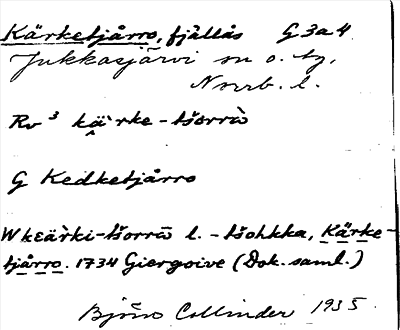 Kärketjårro, fjällås G 3a4
Jukkasjärvi sn o. tg,
Norrb. l.
Rv³ kạ̈̀rke-tšorrò
G Kedketjårro
W kεärki-tšorrɷ l. -tšohkka, Kärke-
tjårro. 1734 Giergoive (Dok. saml.)
Björn Collinder 1935